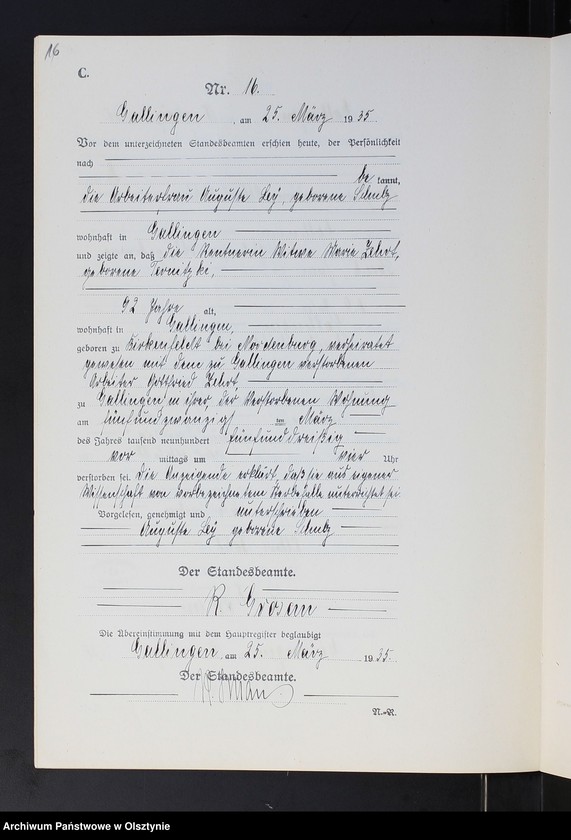 16
C.
Nr. 16.
Gallingen, am 25. März 1935
Vor dem unterzeichneten Standesbeamten erschien heute, der Persönlichkeit
nach
be kannt,
die Arbeiterfrau Auguste Ley, geborene Schulz
wohnhaft in Gallingen
und zeigte an, daß die Rentnerin Witwe Marie
geborene
92 Jahre alt,
wohnhaft in Gallingen,
geboren zu Birkenfeldt bei Nordenburg, verheiratet
gewesen mit dem zu Gallingen verstorbenen
Arbeiter Gottfried
zu Gallingen in ihrer, der Verstorbenen Wohnung
am fünfundzwanzigsten März
des Jahres tausend neunhundert fünfunddreißig
vor mittags um vier Uhr
verstorben sei. Die Anzeigende erklärt, daß sie aus eigener
Wissenschaft von vorbezeichnetem Sterbefalle unterrichtet sei
Vorgelesen, genehmigt und unterschrieben
Auguste Ley geborene Schulz
Der Standesbeamte.
R.
Die Übereinstimmung mit dem Hauptregister beglaubigt
Gallingen, am 25. März 1935.
Der Standesbeamte.
N.=R.
Archiwum Państwowe w Olsztynie